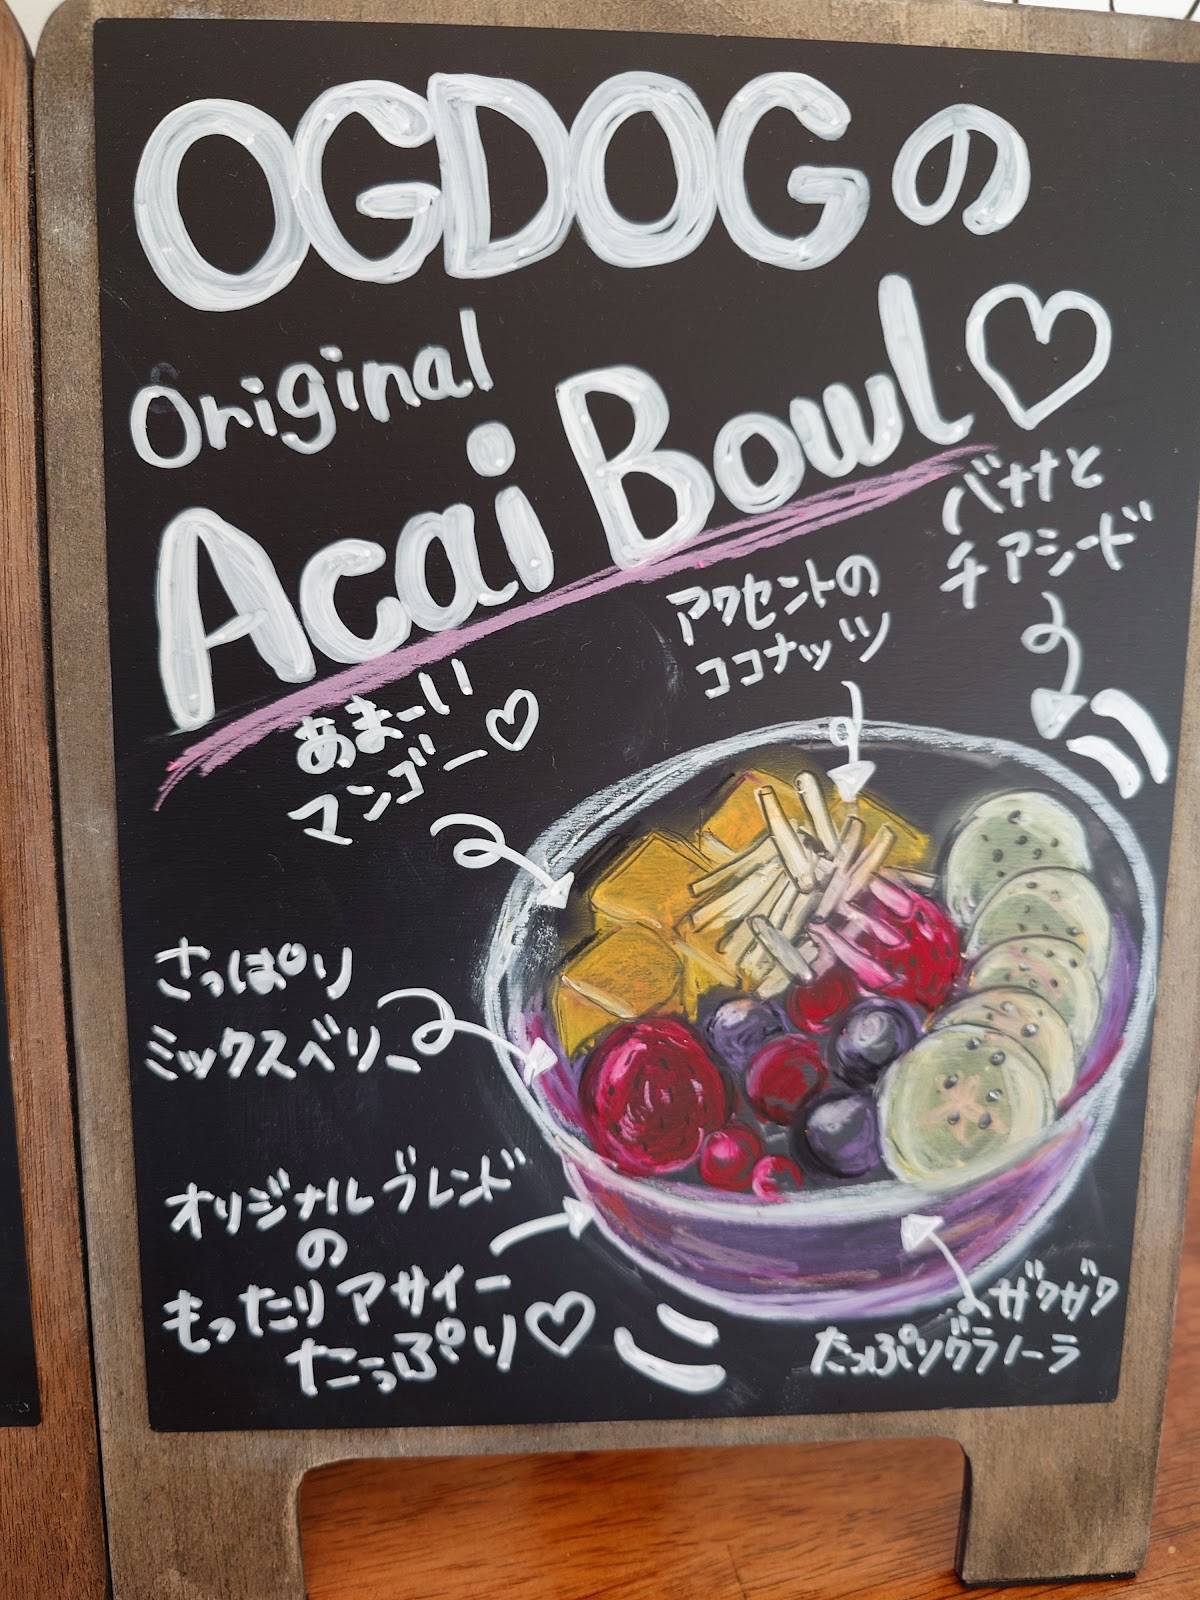 OGDOGの
Original
Acai Bowl♡
バナナと
チアシード
アクセントの
ココナッツ
あまーい
マンゴー♡
さっぱり
ミックスベリー
オリジナルブレンド
の
もったりアサイー
たっぷり♡
ザクザク
たっぷりグラノーラ